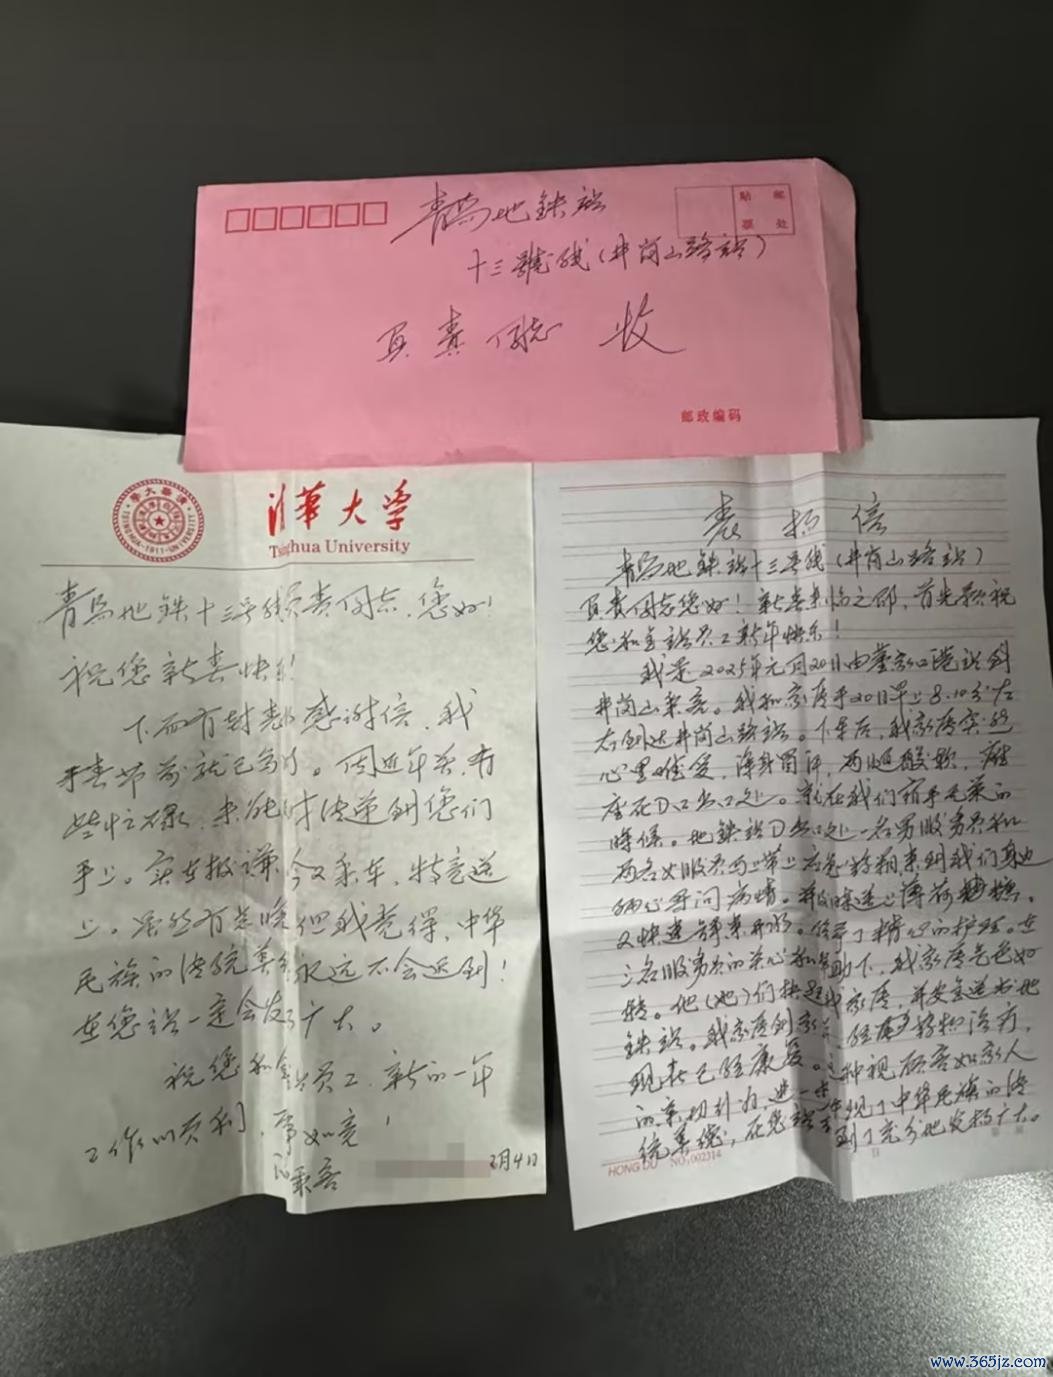 青岛地铁站
贴 邮
票 处
十三號线(井岗山路站)
负责同志 收
邮政编码
清华大学
Tsinghua University
TSINGHUA-1911-UNIVERSITY
青岛地铁十三号线负责同志,您好!
祝您新春快乐!
下面有封表扬感谢信,我
于春节前就已写好。因近年关,有
些忙碌,未能时传递到您们
手上。实在抱谦,今又乘车,特意送
上。虽然有些晚但我觉得,中华
民族的传统美德永远不会迟到!
在您站一定会发扬广大。
祝您和全站员工,新的一年
工作顺利,事如意!
乘客
2月4日
表扬信
青岛地铁站十三号线(井岗山路站)
负责同志您好!新春来临之即,首先预祝
您和全站员工新年快乐!
我是2025年元月20日由董家口港站到
井岗山乘客。我和家属于20日早上8.10分左
右到达井岗山路站。下车后,我家属突然
心里难受,浑身冒汗,两腿酸软,瘫
座在D口出口处。就在我们
時候。地铁站D出口处一名男服务员和
两名女服务员马上带上应急药箱来到我们身边
细心寻问病情。并
又快速
三名服务员的关心和帮助下,我家属气色好
转。他(她)们扶起我家属,并安全送出地
铁站。我家属到家后,经
现在已经康复。这种视顾客如家人
的亲切行为,进一步体现了中华民族的传
统美德,在您站得到了充分地发扬广大。
HONG DU NO:002314
www.365jz.com